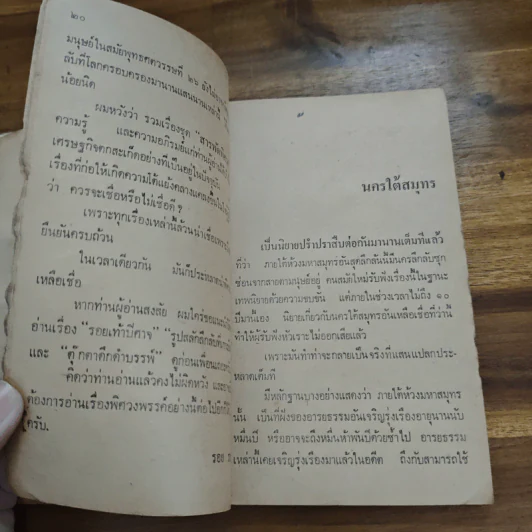 ๒๐
มนุษย์ในสมัยพุทธศตวรรษที่ ๒๖ ยังไม่
ลับที่โลกครอบครองมานานแสนนานเหล่านี้
น้อยนิด
ผมหวังว่า รวมเรื่องชุด
ความรู้ และความอภิรมย์แก่ท่านผู้อ่าน
เศรษฐกิจตกสะเก็ดอย่างที่เป็นอยู่ในปัจจุบัน
เรื่องที่ก่อให้เกิดความโต้แย้งกลาง
ว่า ควรจะเชื่อหรือไม่เชื่อดีๆ
เพราะทุกเรื่องเหล่านี้ล้วนน่าเชื่อ
ยืนยันครบถ้วน
ในเวลาเดียวกัน มันก็ประหลาด
เหลือเชื่อ
หากท่านผู้อ่านสงสัย ผมใคร่ขอแนะนำ
อ่านเรื่อง "รอยเท้าปีศาจ" "รูปสลักลึกลับ
และ "ตุ๊กตาดึกดำบรรพ์" ดูก่อนเพื่อน
คิดว่าท่านอ่านแล้วคงไม่ผิดหวัง และ
ต้องการอ่านเรื่องพิศวงพรรค์อย่างนี้ต่อไปอีก
ครับ.
รอย
นครใต้สมุทร
เป็นนิยายปรำปราสืบต่อกันมานานเต็มทีแล้ว
ที่ว่า ภายใต้ห้วงมหาสมุทรอันสุดลึกลับนั้นมีนครลึกลับซุก
ซ่อนจากสายตามนุษย์อยู่ คนสมัยใหม่รับฟังเรื่องนี้ในฐานะ
เทพนิยายด้วยความขบขัน แต่ภายในช่วงเวลาไม่ถึง ๑๐
ปีมานี้เอง นิยายเกี่ยวกับนครใต้สมุทรอันเหลือเชื่อที่ว่านี้
ทำให้ผู้รับฟังหัวเราะไม่ออกเสียแล้ว
เพราะมันทำท่าจะกลายเป็นจริงที่แสนแปลกประ-
หลาดเต็มที
มีหลักฐานบางอย่างแสดงว่า ภายใต้ห้วงมหาสมุทร
นั้น เป็นที่ฝังของอารยธรรมอันเจริญรุ่งเรืองอายุนานนับ
หมื่นปี หรืออาจจะถึงหมื่นห้าพันปีด้วยซ้ำไป อารยธรรม
เหล่านี้เคยเจริญรุ่งเรืองมาแล้วในอดีต ถึงกับสามารถใช้